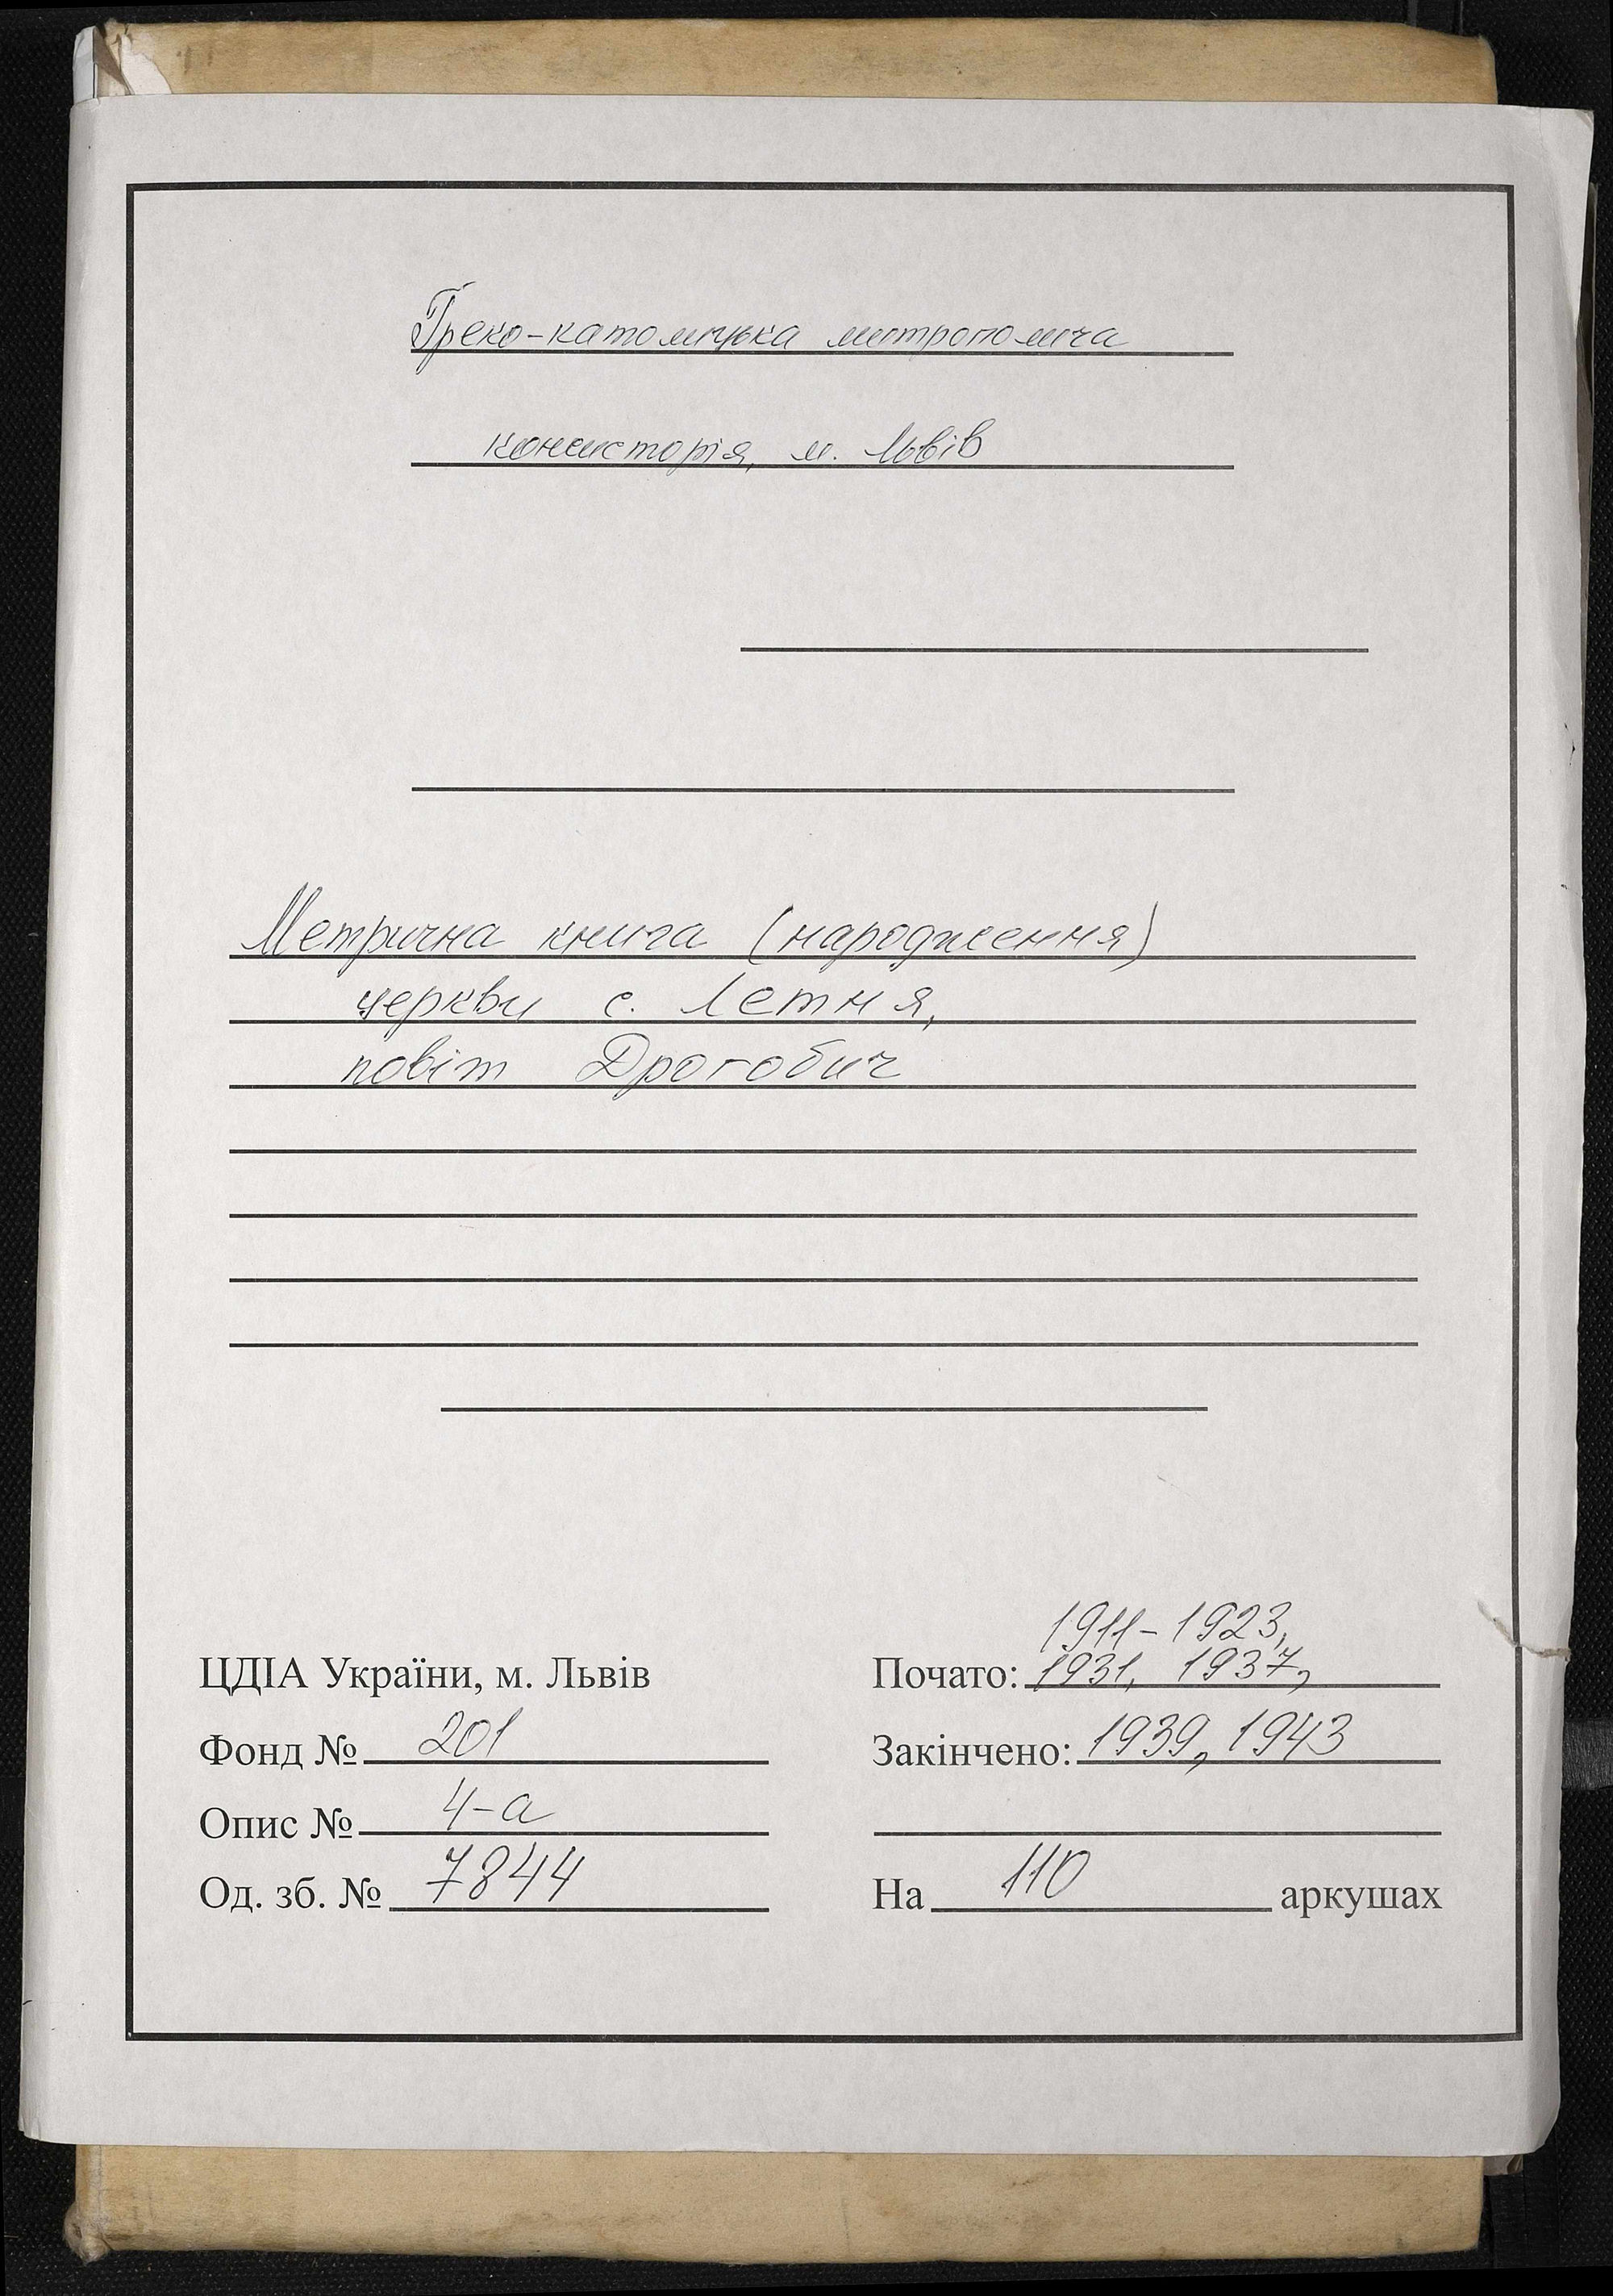 Греко-католицька митрополича
консисторія, м. Львів
Метрична книга (народження)
церкви с. Летня,
повіт Дрогобич
1911-1923,
ЦДІА України, м. Львів Почато: 1931, 1937,
Фонд № 201 Закінчено: 1939, 1943
Опис № 4-а
Од. зб. № 7844 На 110 аркушах